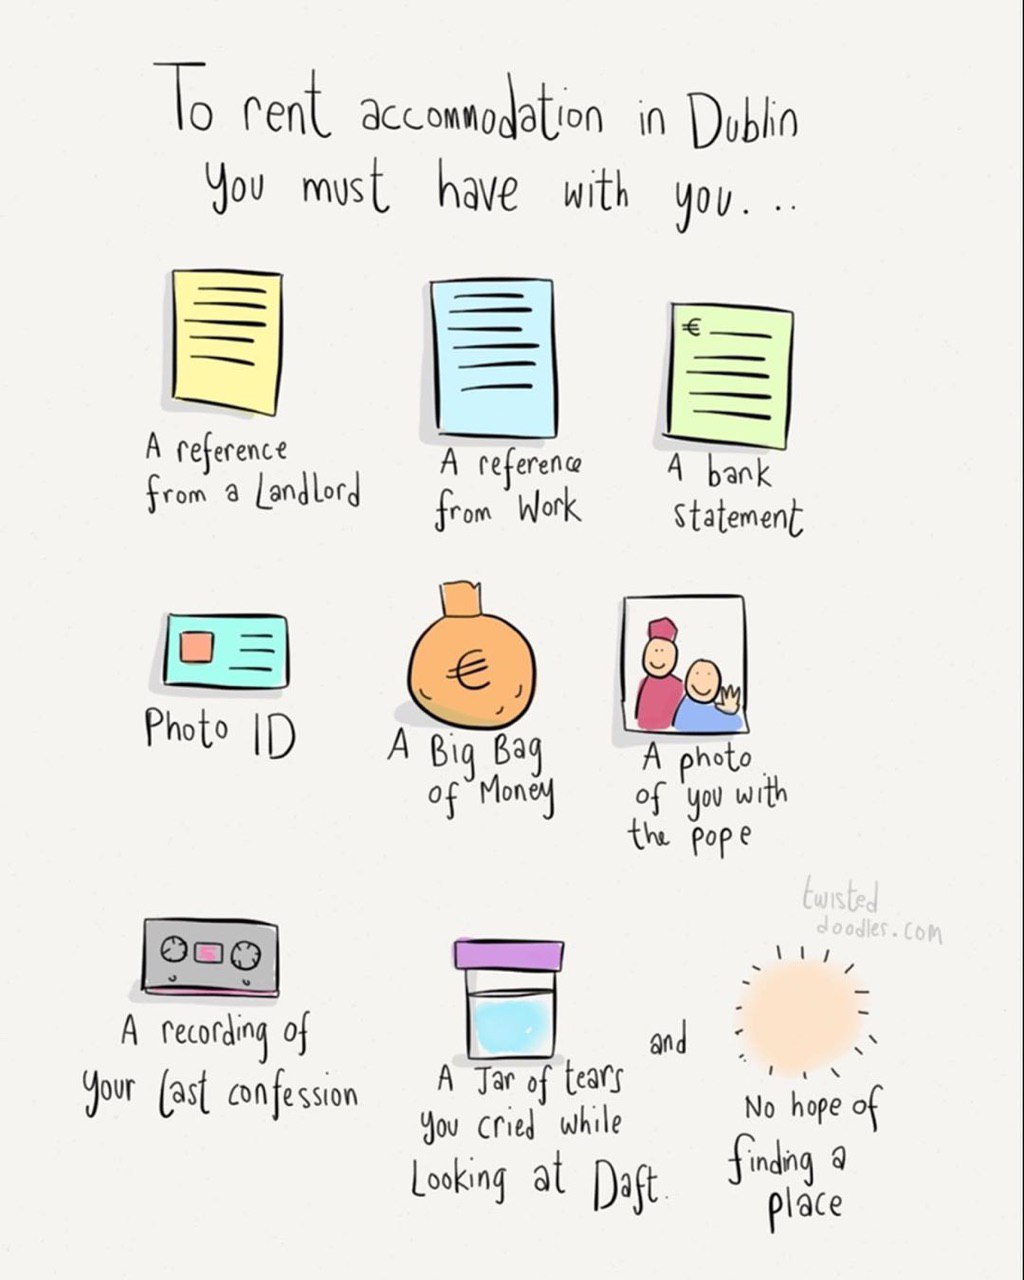 To rent accommodation in Dublin
you must have with you...
A reference
from a Landlord
A reference
from Work
€
A bank
statement
Photo ID
€
A Big Bag
of Money
A photo
of you with
the pope
twisted
doodles.com
A recording of
your last confession
A Jar of tears
you cried while
Looking at Daft.
and
No hope of
finding a
place